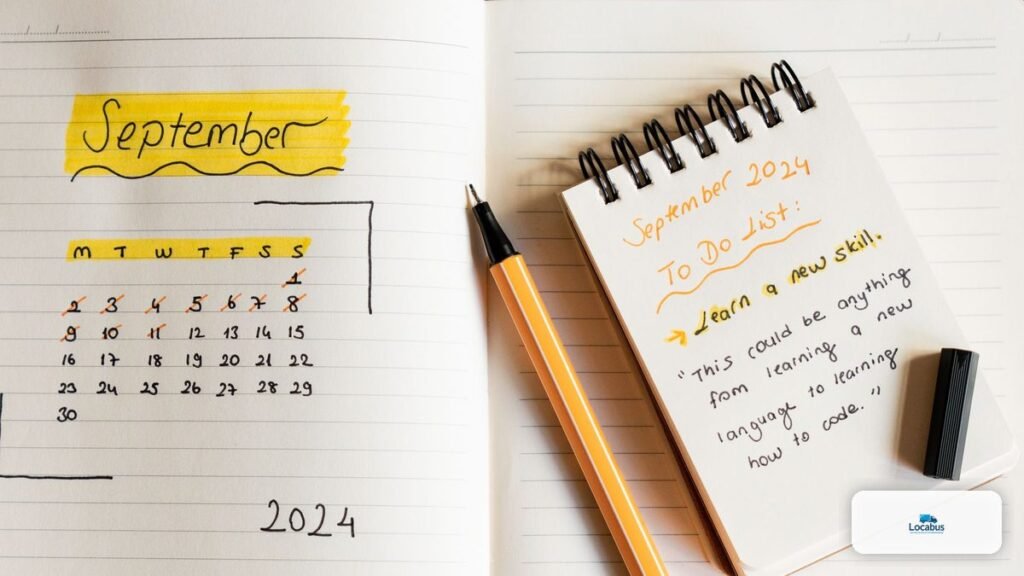 September
M T W T F S S
1
2 3 4 5 6 7 8
9 10 11 12 13 14 15
16 17 18 19 20 21 22
23 24 25 26 27 28 29
30
2024
September 2024
To Do List:
→ Learn a new skill.
"This could be anything
from learning a new
language to learning
how to code."
Locabus